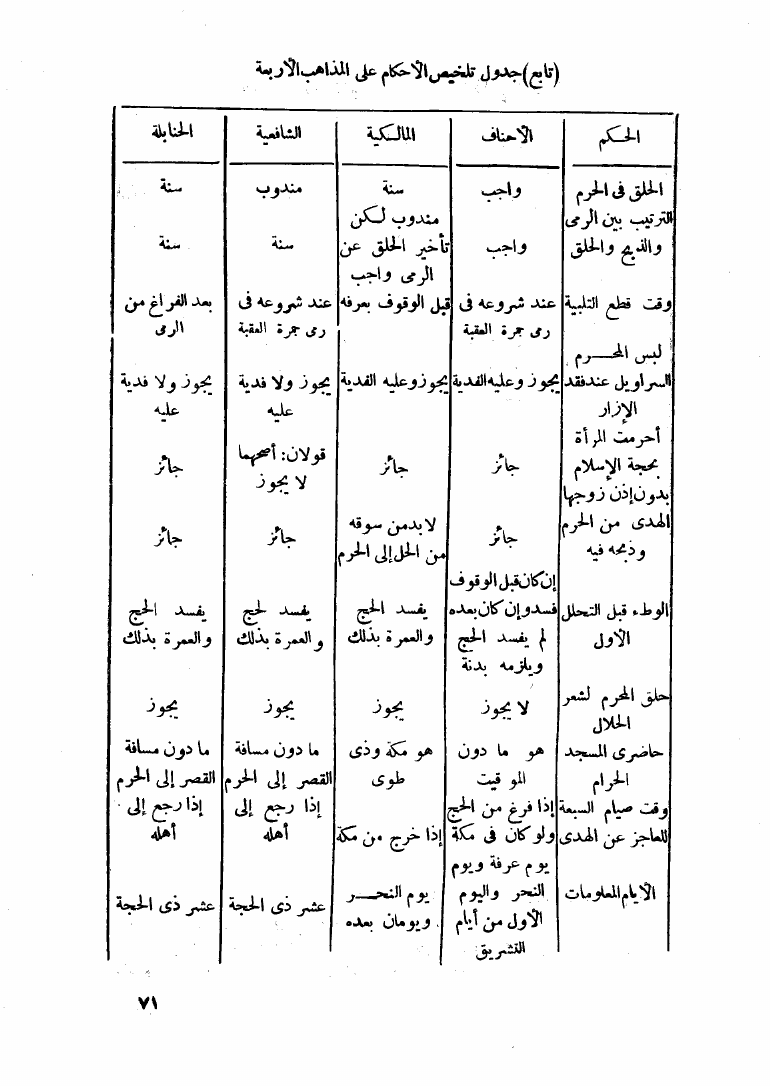 (تابع) جدول تلخيص الأحكام على المذاهب الأربعة
الحكم | الأحناف | المالكية | الشافعية | الحنابلة
الحلق فى الحرم | واجب | سنة | مندوب | سنة
الترتيب بين الرمى | مندوب لكن
والذبح والحلق | واجب | تأخير الحلق عن | سنة | سنة
الرمى واجب
وقت قطع التلبية | عند شروعه فى | قبل الوقوف بعرفه | عند شروعه فى | بعد الفراغ من
رمى جمرة العقبة | رمى جمرة العقبة | الرمى
لبس المحرم
السراويل عند فقد | يجوز وعليه الفدية | يجوز وعليه الفدية | يجوز ولا فدية | يجوز ولا فدية
الإزار | عليه | عليه
أحرمت المرأة
بحجة الإسلام | جائز | جائز | قولان: أصحهما | جائز
بدون إذن زوجها | لا يجوز
الهدى من الحرم | جائز | لابد من سوقه | جائز | جائز
وذبحه فيه | من الحل إلى الحرم
إن كان قبل الوقوف
الوطء قبل التحلل | فسد وإن كان بعده | يفسد الحج | يفسد لحج | يفسد الحج
الأول | لم يفسد الحج | والعمرة بذلك | والعمرة بذلك | والعمرة بذلك
ويلزمه بدنة
حلق المحرم لشعر | لا يجوز | يجوز | يجوز | يجوز
الحلال
حاضرى المسجد | هو ما دون | هو مكة وذى | ما دون مسافة | ما دون مسافة
الحرام | المو قيت | طوى | القصر إلى الحرم | القصر إلى الحرم
وقت صيام السبعة | إذا فرغ من الحج | إذا رجع إلى | إذا رجع إلى
للعاجز عن الهدى | ولو كان فى مكة | إذا خرج من مكة | أهله | أهله
يوم عرفة ويوم
الأيام المعلومات | النحر واليوم | يوم النحر | عشر ذى الحجة | عشر ذى الحجة
الأول من أيام | ويومان بعده
التشريق
٧١